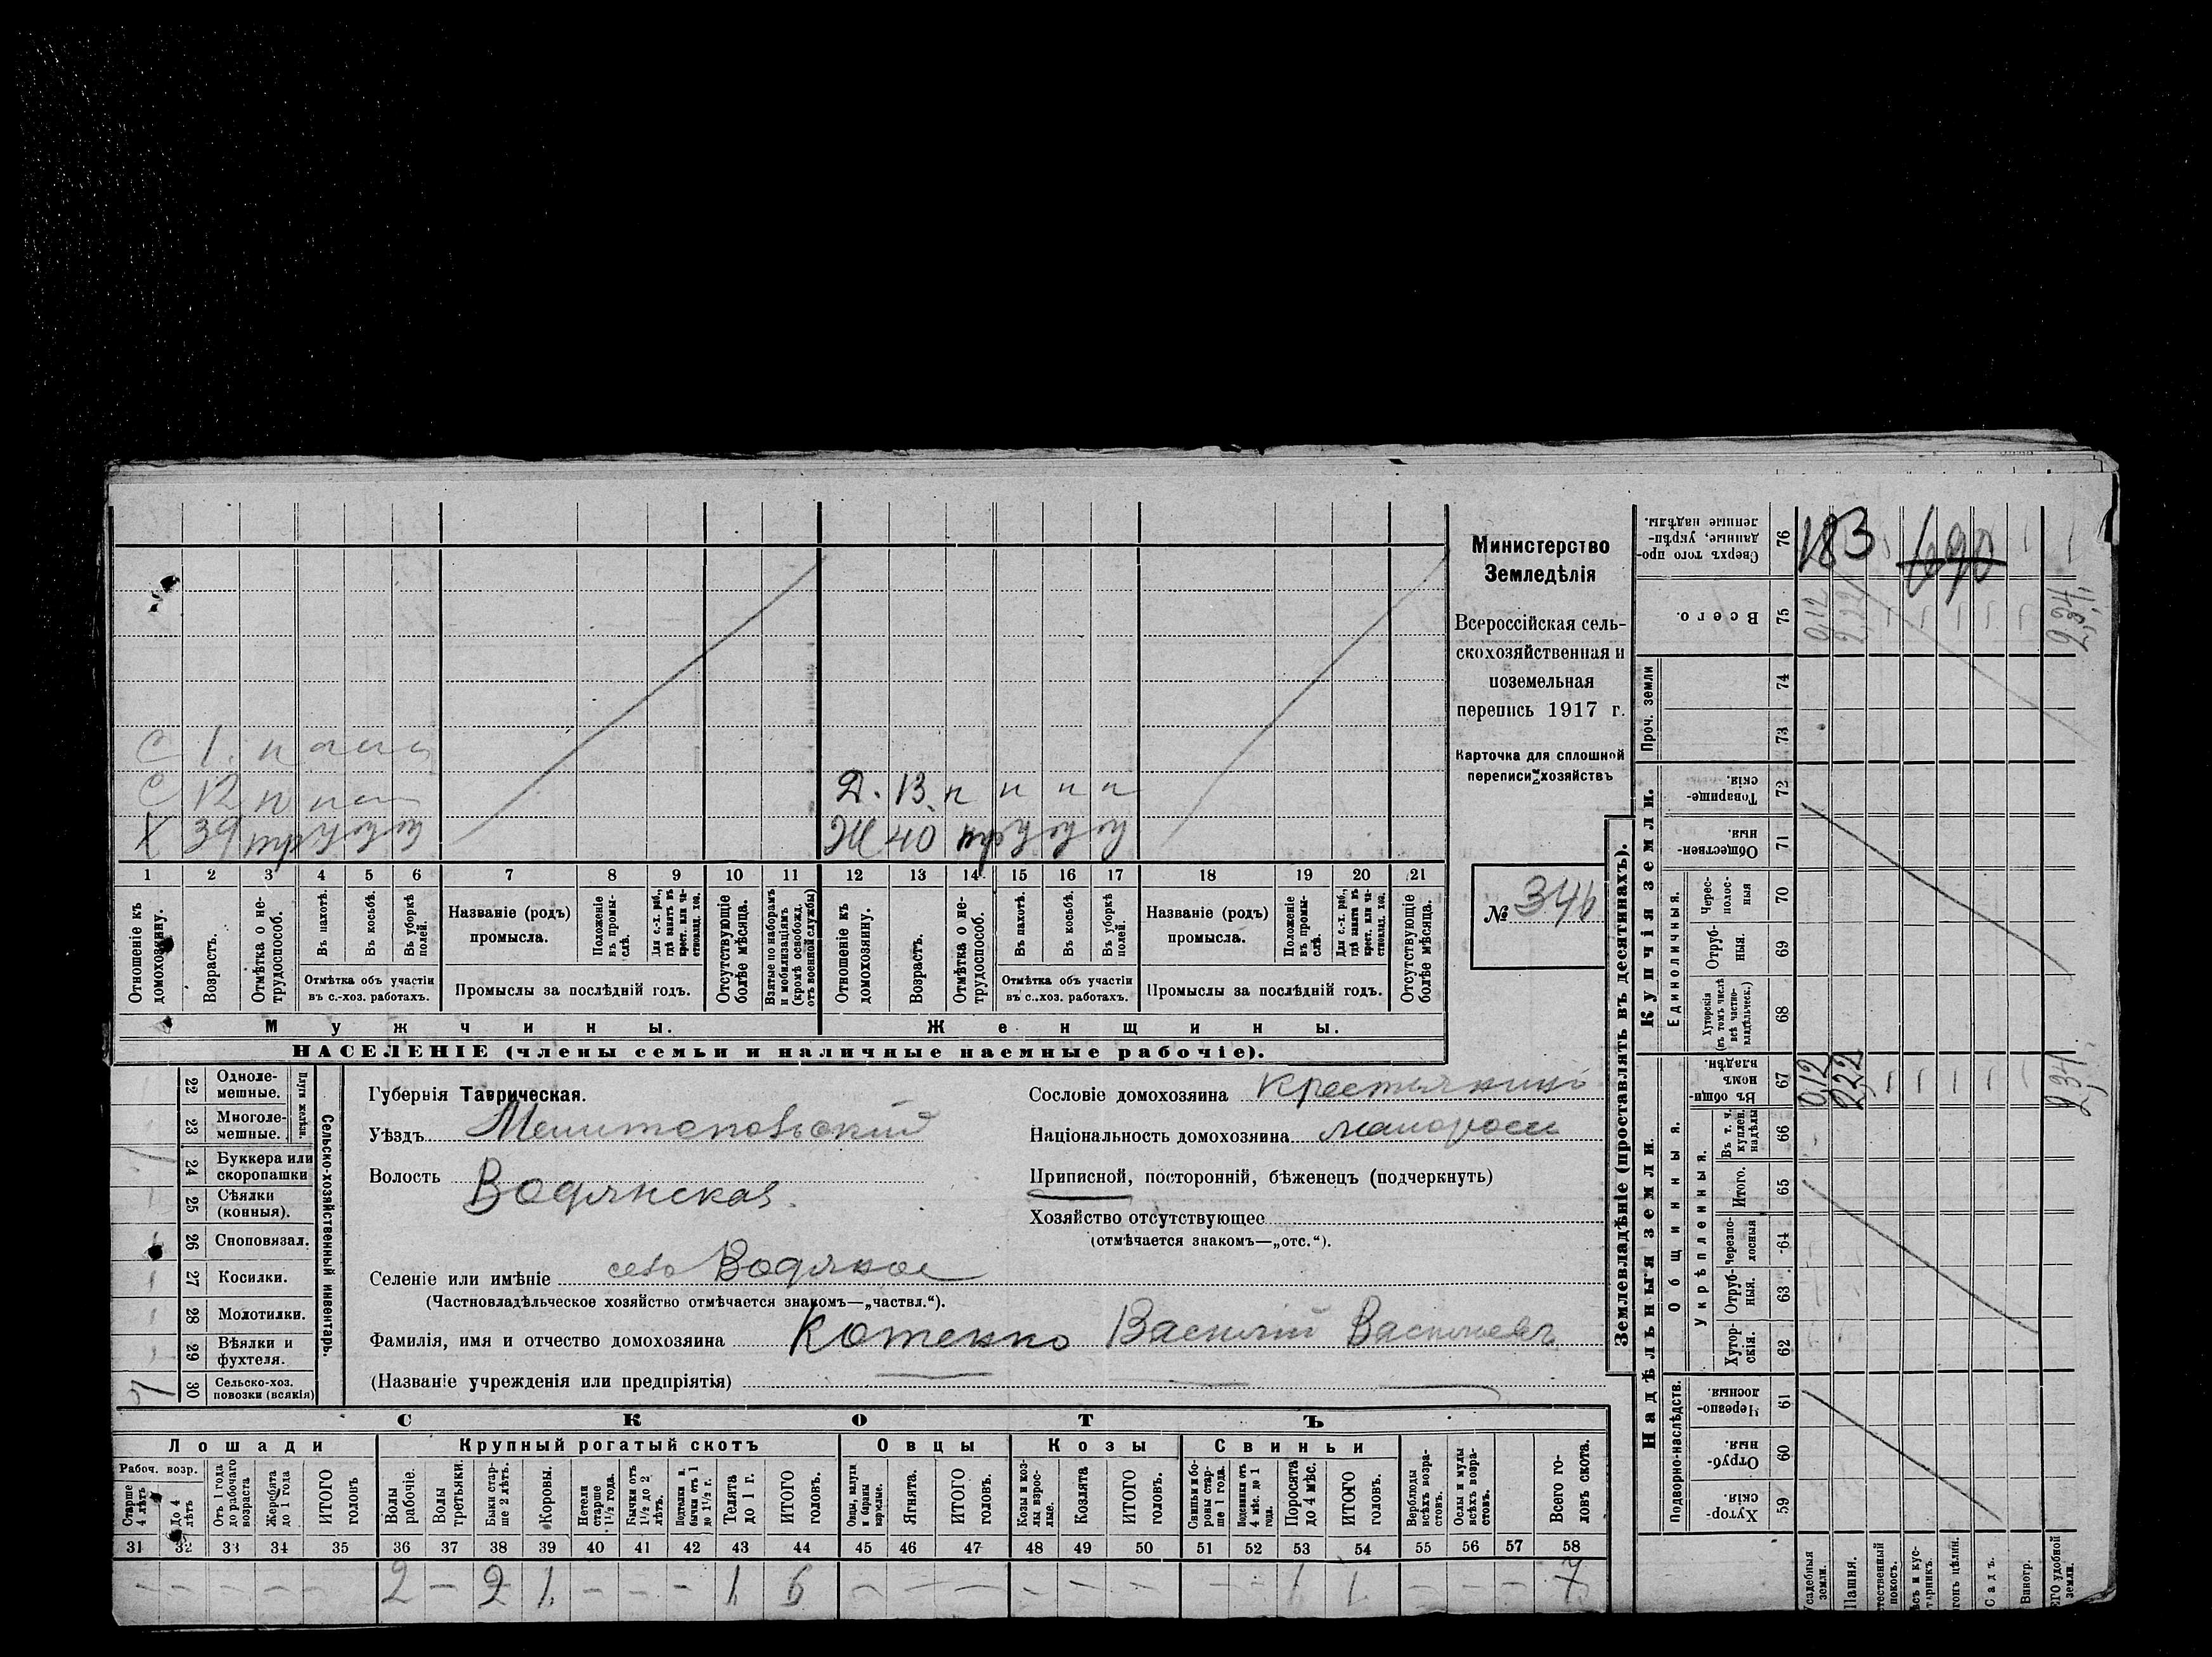 С 1. п п п п
С 12 п п п п
Х 39
Д. 13. п п п п
Ж 40
1 2 3 4 5 6 7 8 9 10 11 12 13 14 15 16 17 18 19 20 21
Отношеніе къ домохозяину.
Возрастъ.
Отмѣтка о не-трудоспособ.
Въ пахотѣ.
Въ косьбѣ.
Въ уборкѣ полей.
Отмѣтка объ участіи въ с.-хоз. работахъ.
Названіе (родъ) промысла.
Положеніе въ промы-слѣ.
Для с.-х. раб., гдѣ занятъ въ крест. или ча-стновлад. хоз.
Промыслы за послѣдній годъ.
Отсутствующіе болѣе мѣсяца.
Взятые по наборамъ и мобилизаціямъ (кромѣ освобожд. отъ военной службы)
Отношеніе къ домохозяину.
Возрастъ.
Отмѣтка о не-трудоспособ.
Въ пахотѣ.
Въ косьбѣ.
Въ уборкѣ полей.
Отмѣтка объ участіи въ с.-хоз. работахъ.
Названіе (родъ) промысла.
Положеніе въ промы-слѣ.
Для с.-х. раб., гдѣ занята въ крест. или ча-стновлад. хоз.
Промыслы за послѣдній годъ.
Отсутствующіе болѣе мѣсяца.
Мужчины.
Женщины.
НАСЕЛЕНІЕ (члены семьи и наличные наемные рабочіе).
Министерство
Земледѣлія
Всероссійская сель-
скохозяйственная и
поземельная
перепись 1917 г.
Карточка для сплошной
переписи хозяйствъ
№ 346
Сельско-хозяйственный инвентарь.
Плуги желѣзн.
22 Одноле-мешные.
23 Многоле-мешные.
24 Буккера или скоропашки
25 Сѣялки (конныя).
26 Сноповязал.
27 Косилки.
28 Молотилки.
29 Вѣялки и фухтеля.
30 Сельско-хоз. повозки (всякія)
Губернія Таврическая.
Уѣздъ Мелитопольскій
Волость Водянская.
Селеніе или имѣніе село Водяное
(Частновладѣльческое хозяйство отмѣчается знакомъ—„частвл.“).
Фамилія, имя и отчество домохозяина Котенко Василій Васильевъ
(Названіе учрежденія или предпріятія)
Сословіе домохозяина крестьянинъ
Національность домохозяина малоросс
Приписной, посторонній, бѣженецъ (подчеркнуть)
Хозяйство отсутствующее
(отмѣчается знакомъ—„отс.“).
СКОТЪ
Лошади
Крупный рогатый скотъ
Овцы
Козы
Свиньи
Рабоч. возр.
Старше 4 лѣтъ
До 4 лѣтъ
Отъ 1 года до рабочаго возраста
Жеребята до 1 года
ИТОГО головъ
Волы рабочіе.
Волы третьяки.
Быки стар-ше 2 лѣтъ.
Коровы.
Нетели старше 1½ года.
Бычки отъ 1½ до 2 лѣтъ.
Подтелки и бычки отъ 1 до 1½ г.
Телята до 1 г.
ИТОГО головъ.
Овцы, валухи и бараны взрослые.
Ягнята.
ИТОГО головъ.
Козы и коз-лы взрос-лые.
Козлята
ИТОГО головъ.
Свиньи и бо-ровы стар-ше 1 года.
Подсвинки отъ 4 мѣс. до 1 года.
Поросята до 4 мѣс.
ИТОГО головъ.
Верблюды всѣхъ возра-стовъ.
Ослы и мулы всѣхъ возра-стовъ.
Всего го-ловъ скота.
31 32 33 34 35 36 37 38 39 40 41 42 43 44 45 46 47 48 49 50 51 52 53 54 55 56 57 58
– – – – – 2 – 2 1. – – – 1. 6 – – – – – – – – 1 1. – – – 7
Землевладѣніе (проставлять въ десятинахъ).
Надѣльныя земли.
Купчія земли.
Проч. земли
Подворно-наслѣдств.
Общинныя.
Укрѣпленныя.
Единоличныя.
Хутор-скія 59
Отруб-ныя. 60
Черезпо-лосныя. 61
Хутор-скія. 62
Отруб-ныя. 63
Черезпо-лосныя 64
Итого. 65
Въ т. ч. куплен. надѣлы 66
Въ общи-номъ владѣн. 67
Хуторскія (въ томъ числѣ всѣ частно-владѣльческ.) 68
Отруб-ныя. 69
Черес-полос-ныя 70
Обществен-ныя. 71
Товарище-скія. 72
73
74
Всего. 75
Сверхъ того про-данные, укрѣп-ленные надѣлы. 76
0,12
2,22
2,34
0,12
2,22
2,34
183
690
Усадебныя земли.
Пашня.
Садъ.
Виногр.